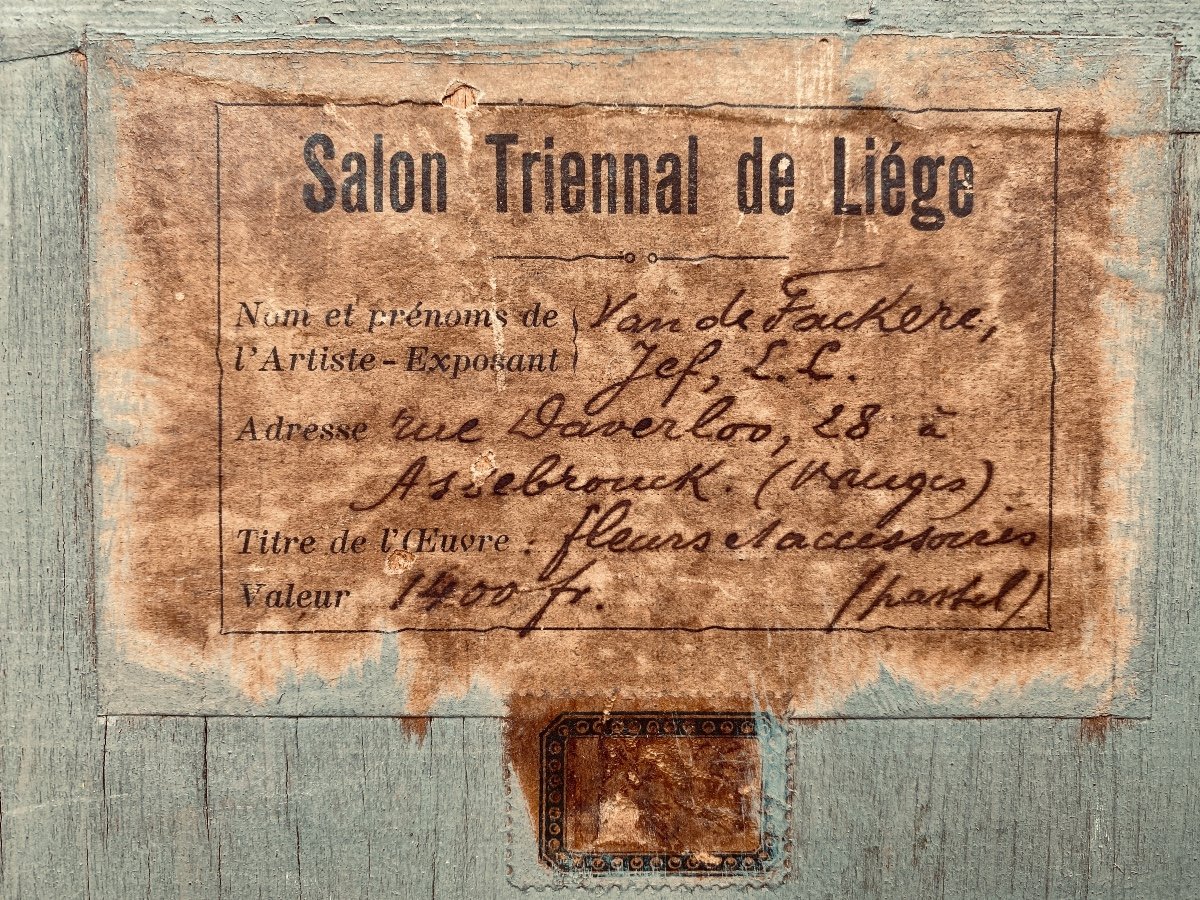 Salon Triennal de Liége
Nom et prénoms de Van de Fackere,
l'Artiste-Exposant Jef, L.L.
Adresse rue Daverloo, 28 à
Assebrouck. (Bruges)
Titre de l'Œuvre : fleurs et accessoires
Valeur 1400 fr. (pastel)